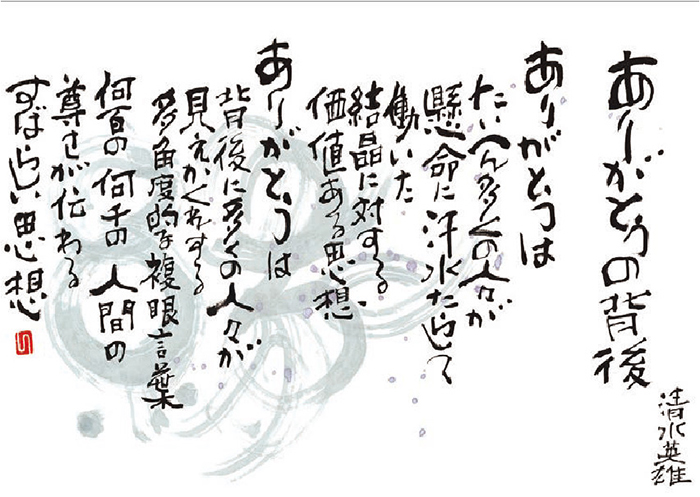 ありがとうの背後
清水英雄
ありがとうは
たいへん多くの人々が
懸命に汗水たらして
働いた
結晶に対する
価値ある思想
ありがとうは
背後に多くの人々が
見えかくれする
多角度的な複眼言葉
何百の何千の人間の
尊さが伝わる
すばらしい思想